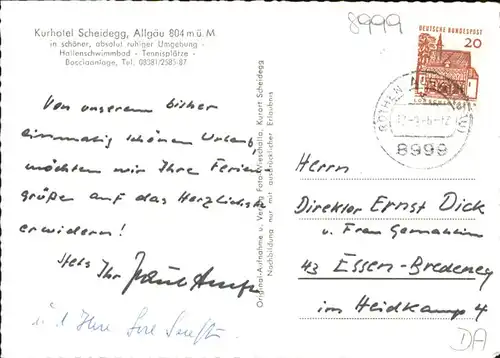 8999
Kurhotel Scheidegg, Allgäu 804 m ü. M.
in schöner, absolut ruhiger Umgebung -
Hallenschwimmbad - Tennisplätze -
Bocciaanlage, Tel. 08381/2585-87
Von unserem bisher
einmalig schönen Urlaub,
möchten wir Ihre Ferien-
grüße auf das Herzlichste
erwidern!
Stets Ihr
Original-Aufnahme u. Verlag Foto Kurort Scheidegg
Nachbildung nur mit ausdrücklicher Erlaubnis
DEUTSCHE BUNDESPOST
20
8999
Herrn
Direktor Ernst Dick
u. Frau Gemahlin
43 Essen-Bredeney
im Heidkamp 4
DA